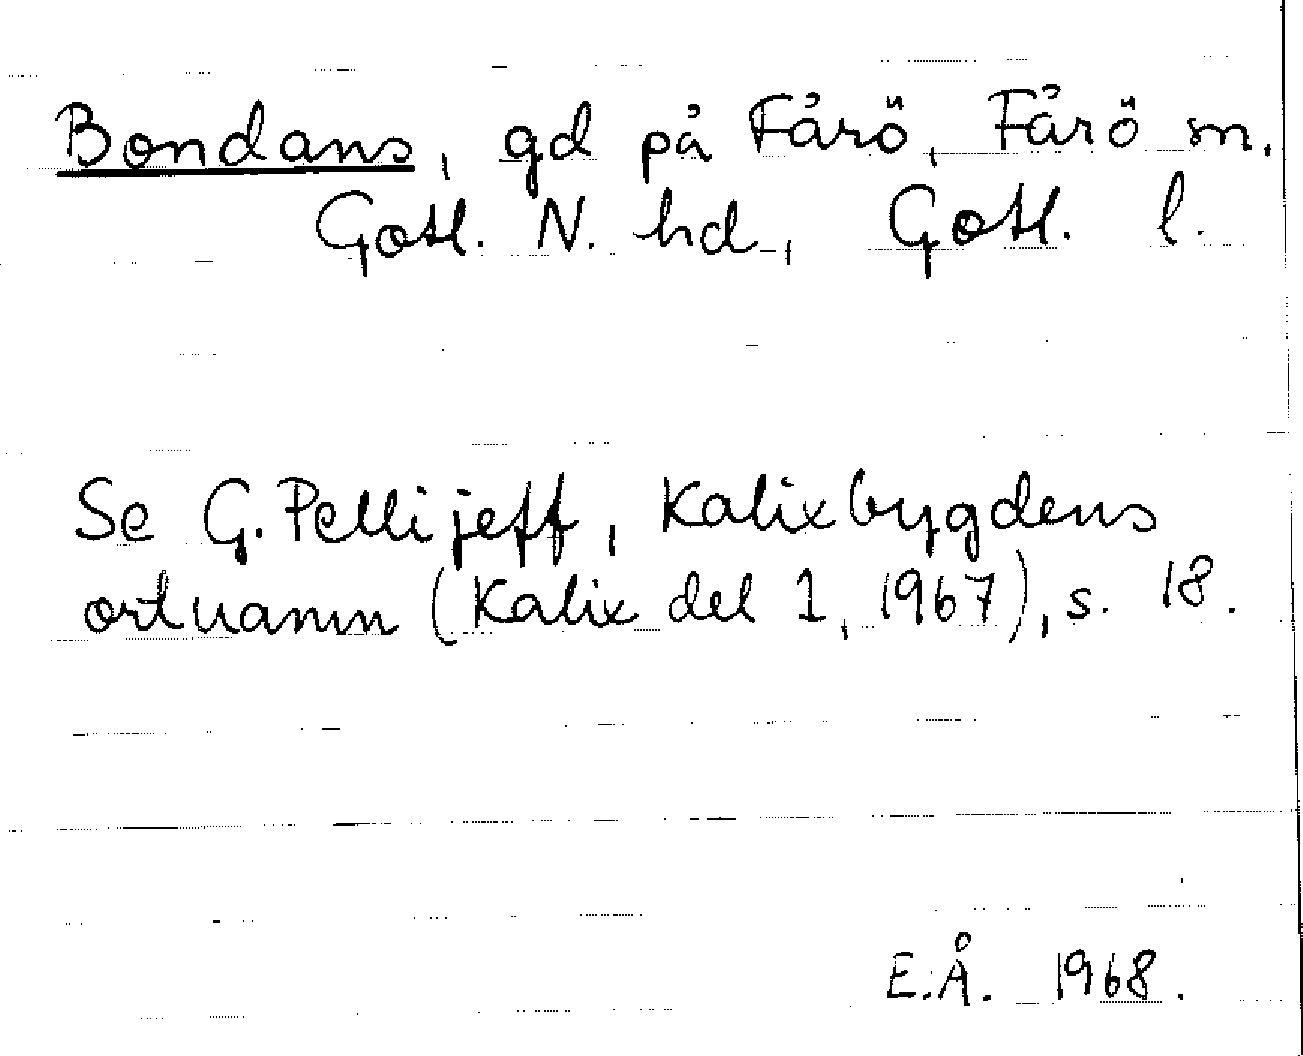 Bondans, gd på Fårö, Fårö sn,
Gotl. N. hd, Gotl. l.
Se G. Pellijeff, Kalixbygdens
ortnamn (Kalix del 1, 1967), s. 18.
E.Å. 1968.